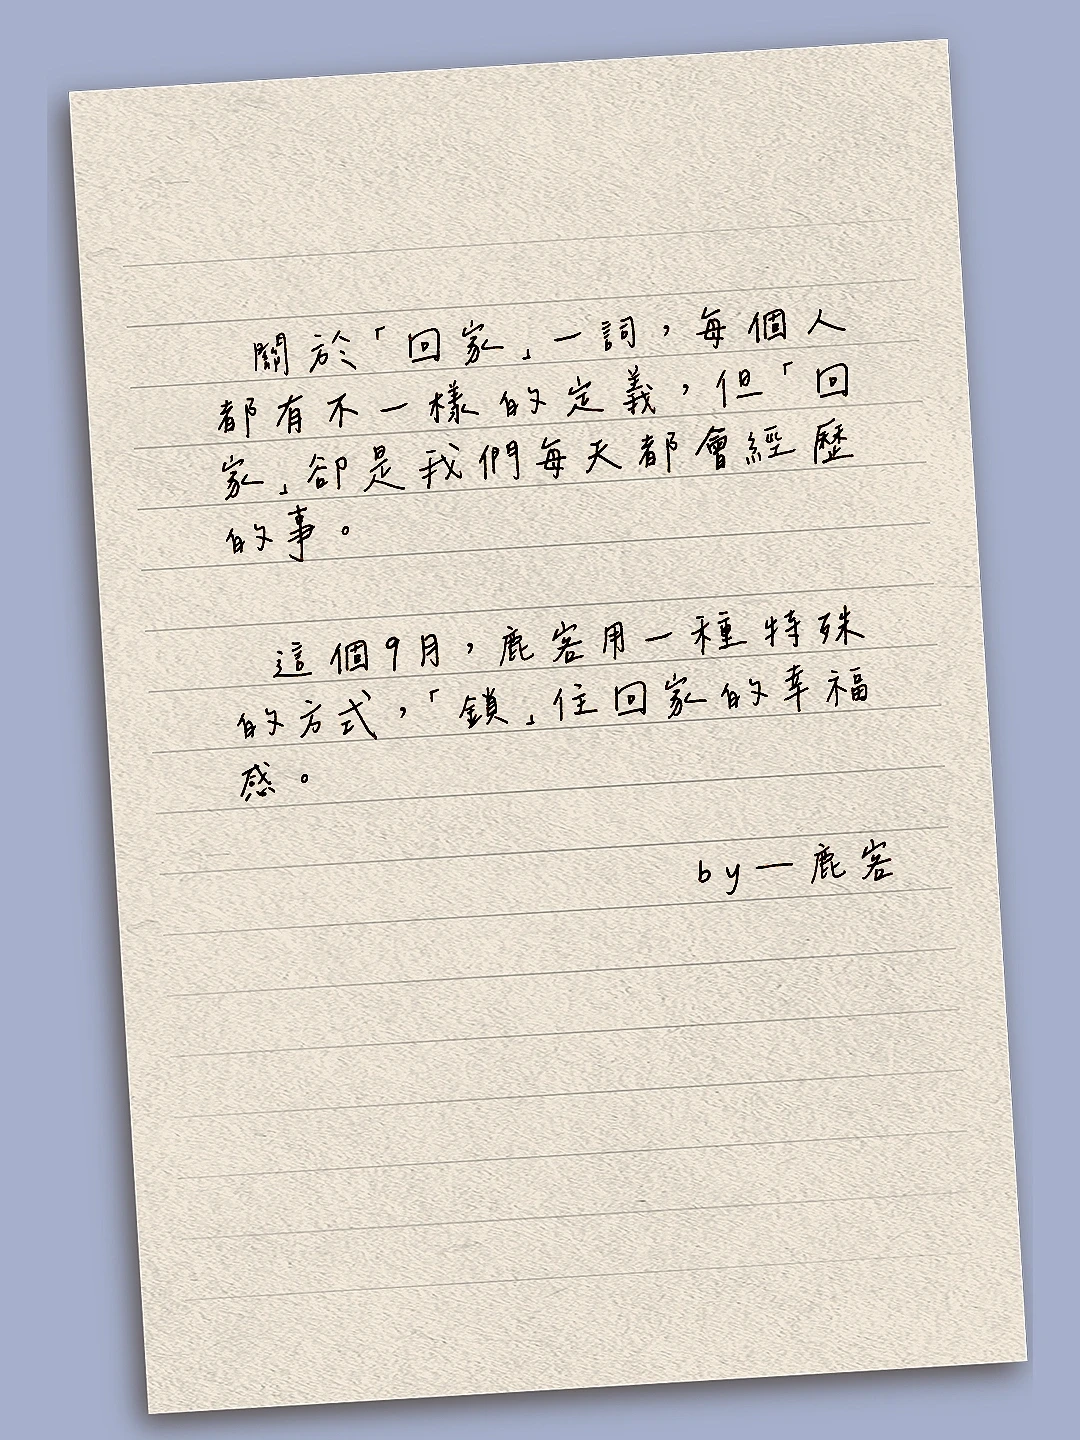 關於「回家」一詞，每個人
都有不一樣的定義，但「回
家」卻是我們每天都會經歷
的事。
這個9月，鹿客用一種特殊
的方式，「鎖」住回家的幸福
感。
by—鹿客